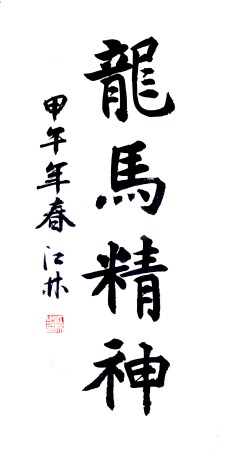 龍馬精神
甲午年春 江林